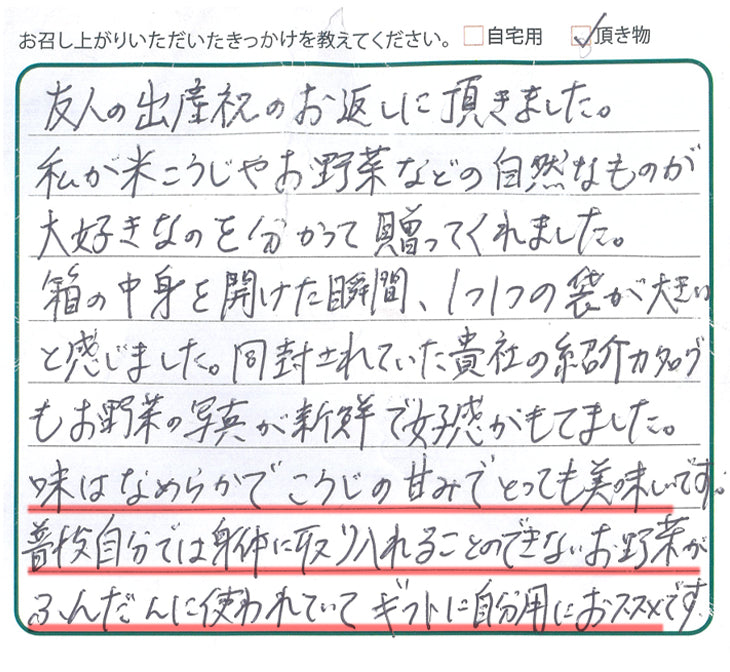 お召し上がりいただいたきっかけを教えてください。 自宅用 頂き物
友人の出産祝のお返しに頂きました。
私が米こうじやお野菜などの自然なものが
大好きなのを分かって贈ってくれました。
箱の中身を開けた瞬間、1つ1つの袋が大きい
と感じました。同封されていた貴社の紹介カタログ
もお野菜の写真が新鮮で好感がもてました。
味はなめらかでこうじの甘みでとっても美味しいです。
普段自分では身体に取り入れることのできないお野菜が
ふんだんに使われていてギフトに自分用におススメです